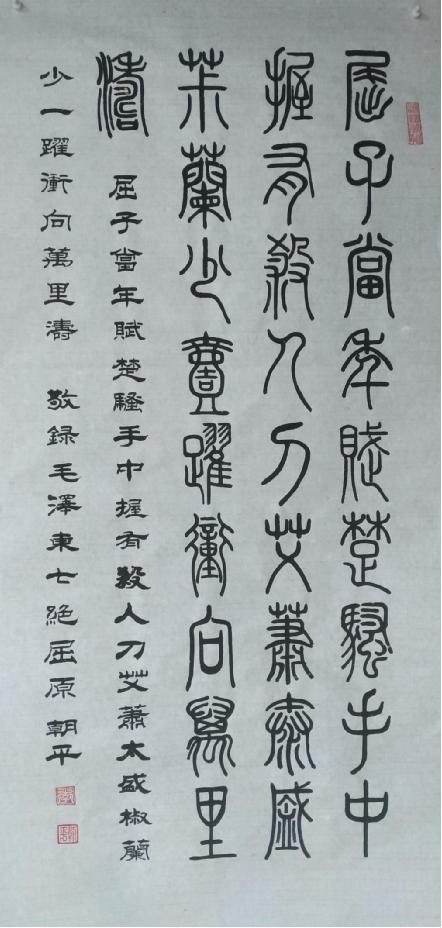 屈子當年賦楚騷手中
握有殺人刀艾蕭泰盛
茮蘭少壹躍衝向萬里
濤
屈子當年賦楚騷手中握有殺人刀艾蕭太盛椒蘭
少一躍衝向萬里濤 敬錄毛澤東七絕屈原 朝平